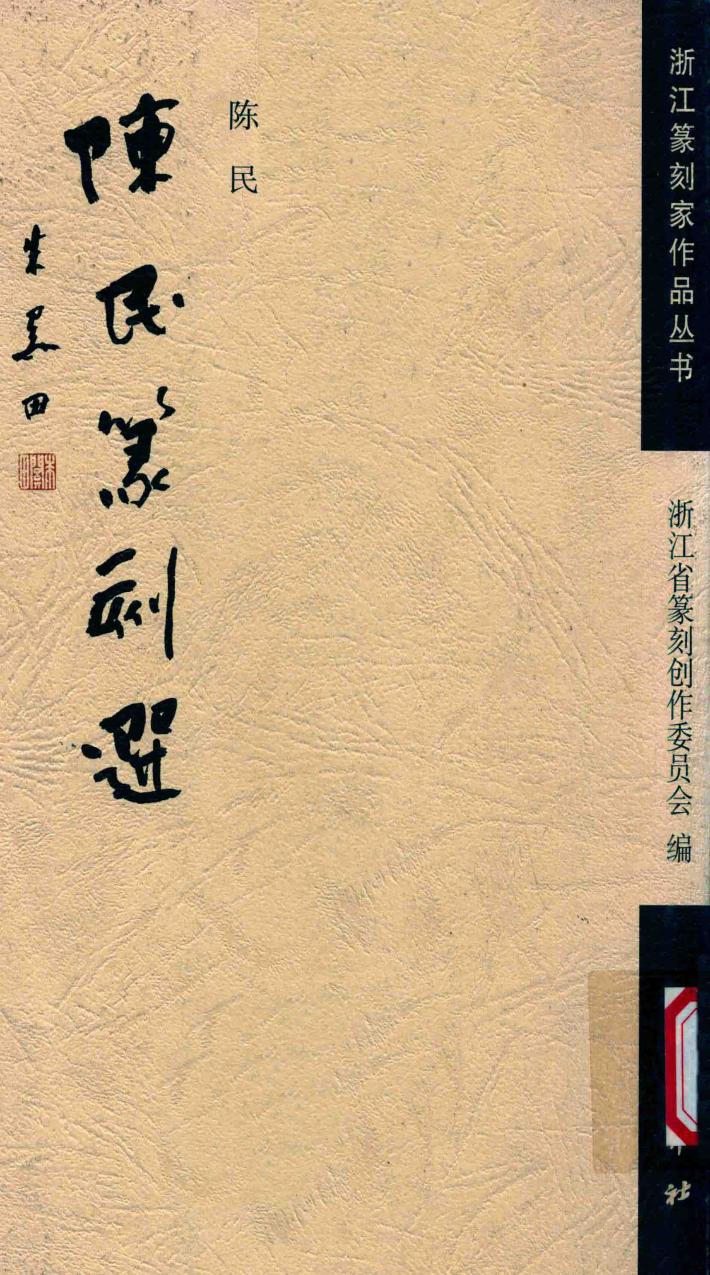 浙江篆刻家作品丛书
浙江省篆刻创作委员会 编
社
陈民
陳民篆刻選
朱關田